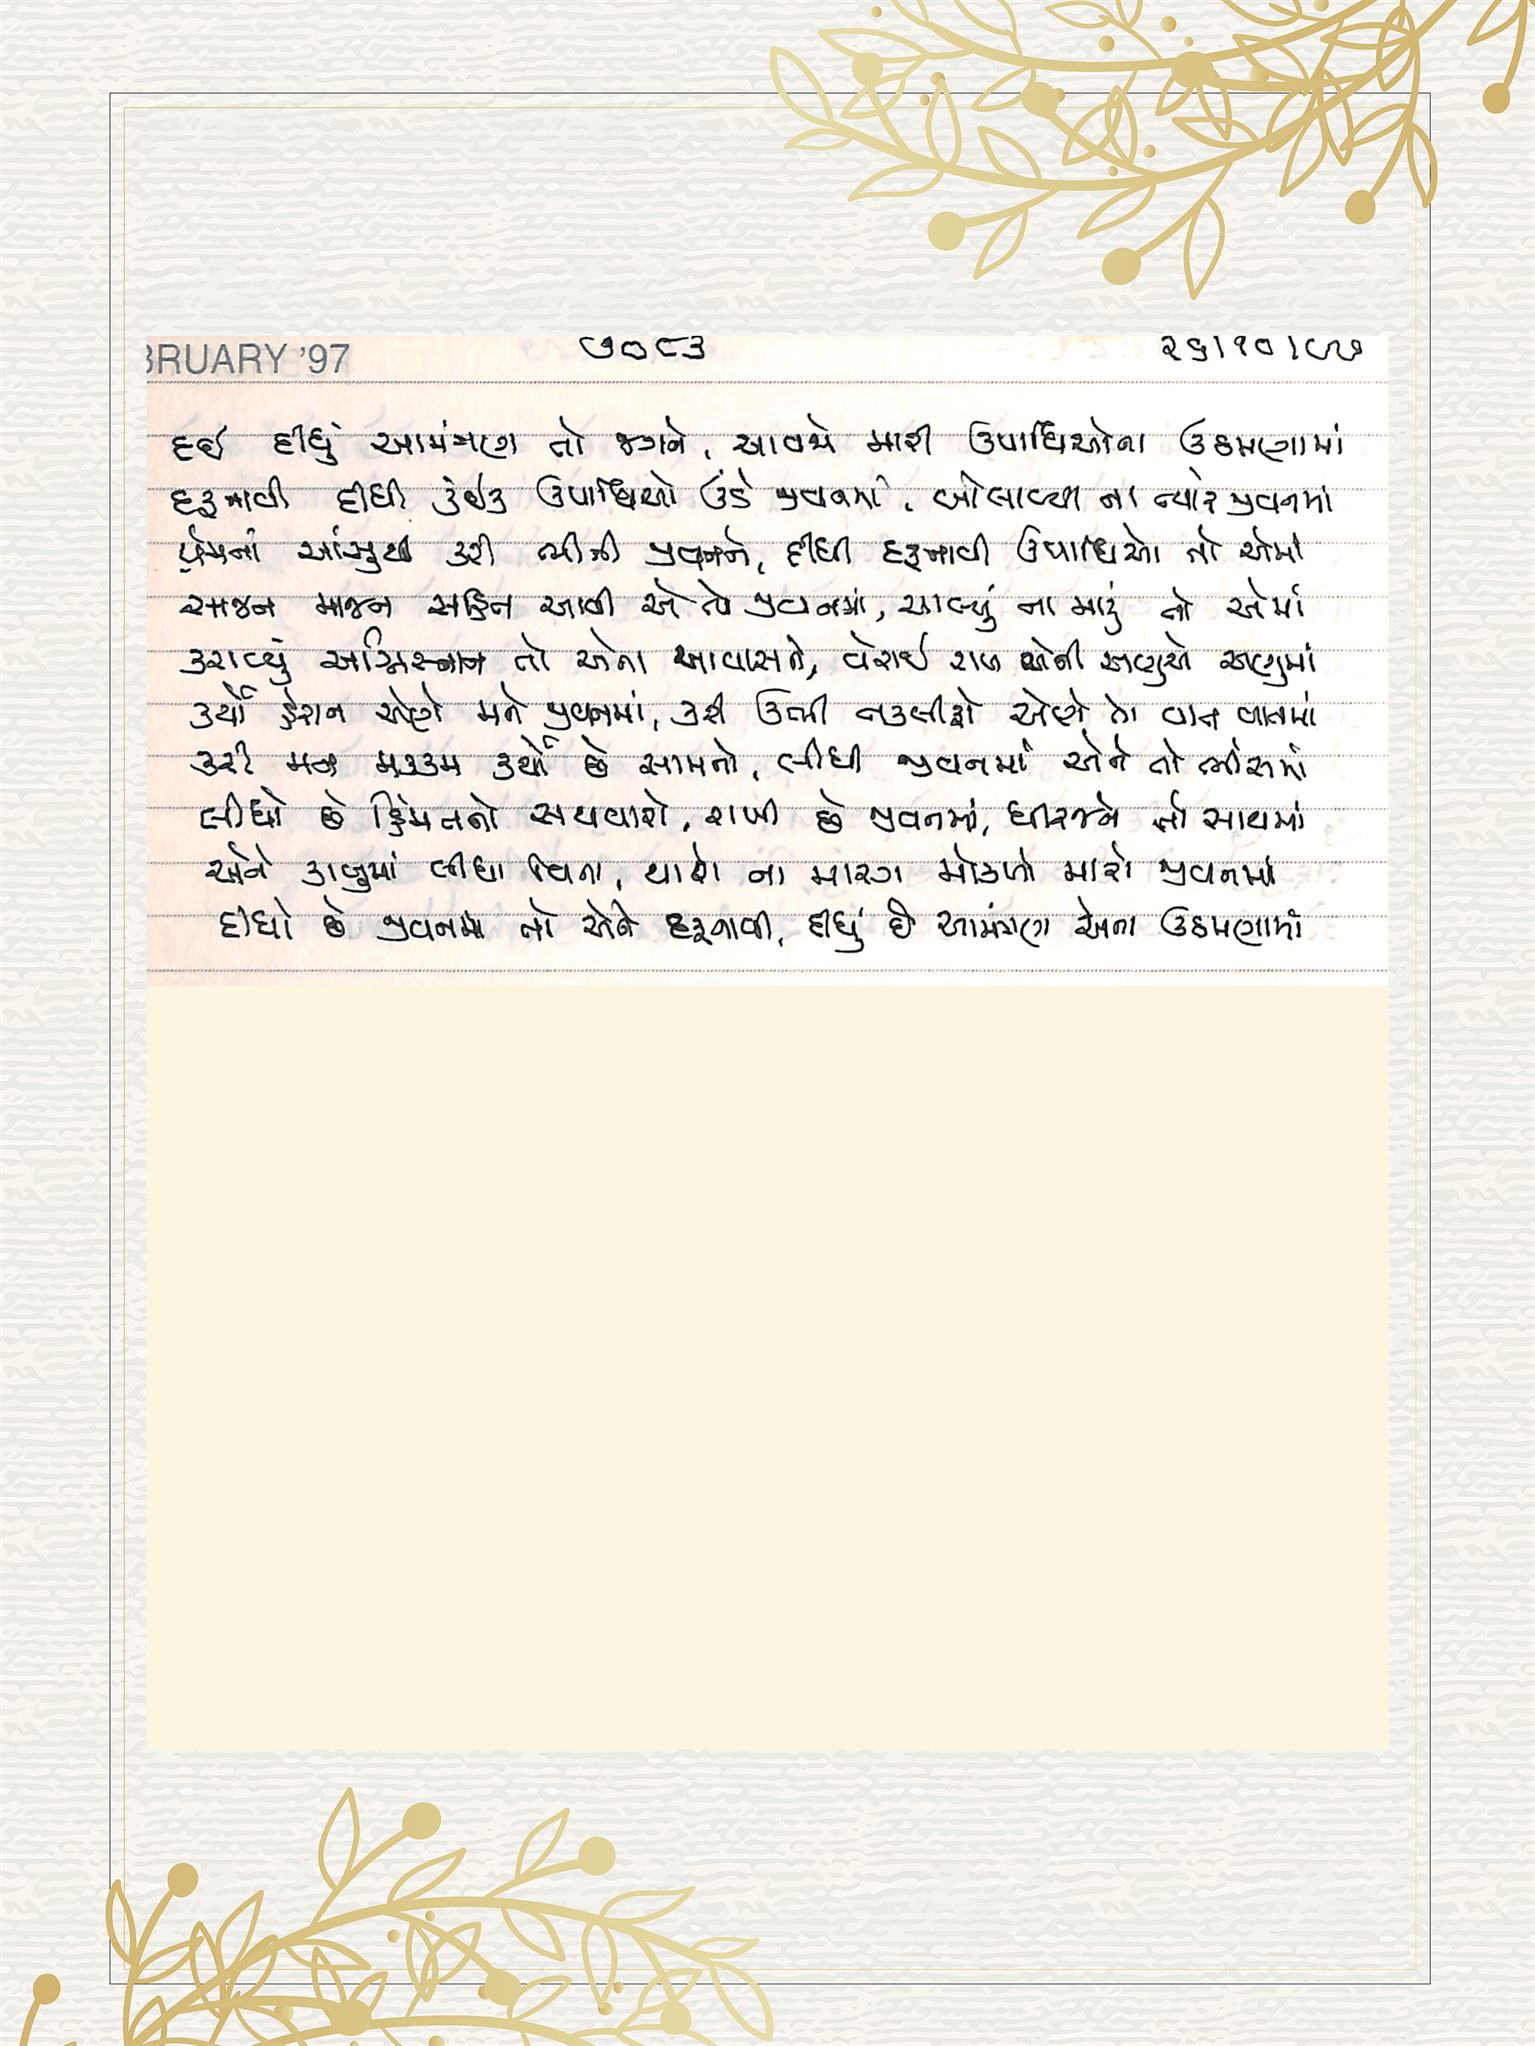 BRUARY '97 ૭૦૮૩ ૨૬।૧૦।૯૭
દઈ દીધું આમંત્રણ તો જગને, આવજો મારી ઉપાધિઓના ઉઠમણામાં
દફનાવી દીધી કંઈક ઉપાધિઓ ઉંડે જીવનમાં, બોલાવ્યા ના ત્યારે જીવનમાં
પ્રેમનાં આંસુથી કરી ભીની જીવનને, દીધી દફનાવી ઉપાધિઓ તો એમાં
સાજન માજન સહિત આવી એ તો જીવનમાં, ચાલ્યું ના મારું તો એમાં
કરાવ્યું અગ્નિસ્નાન તો એના આવાસને, વેરાઈ રાખ એની અણુએ અણુમાં
કર્યો હેરાન એણે મને જીવનમાં, કરી ઉભી તકલીફો એણે તો વાત વાતમાં
કરી મન મક્કમ કર્યો છે સામનો, લીધી જીવનમાં એને તો ભીંસમાં
લીધો છે હિંમતનો સથવારો, રાખી છે જીવનમાં, ધીરજને તો સાથમાં
એને કાબુમાં લીધા વિના, થાશે ના મારગ મોકળો મારો જીવનમાં
દીધો છે જીવનમાં તો એને દફનાવી, દીધું છે આમંત્રણ એના ઉઠમણામાં